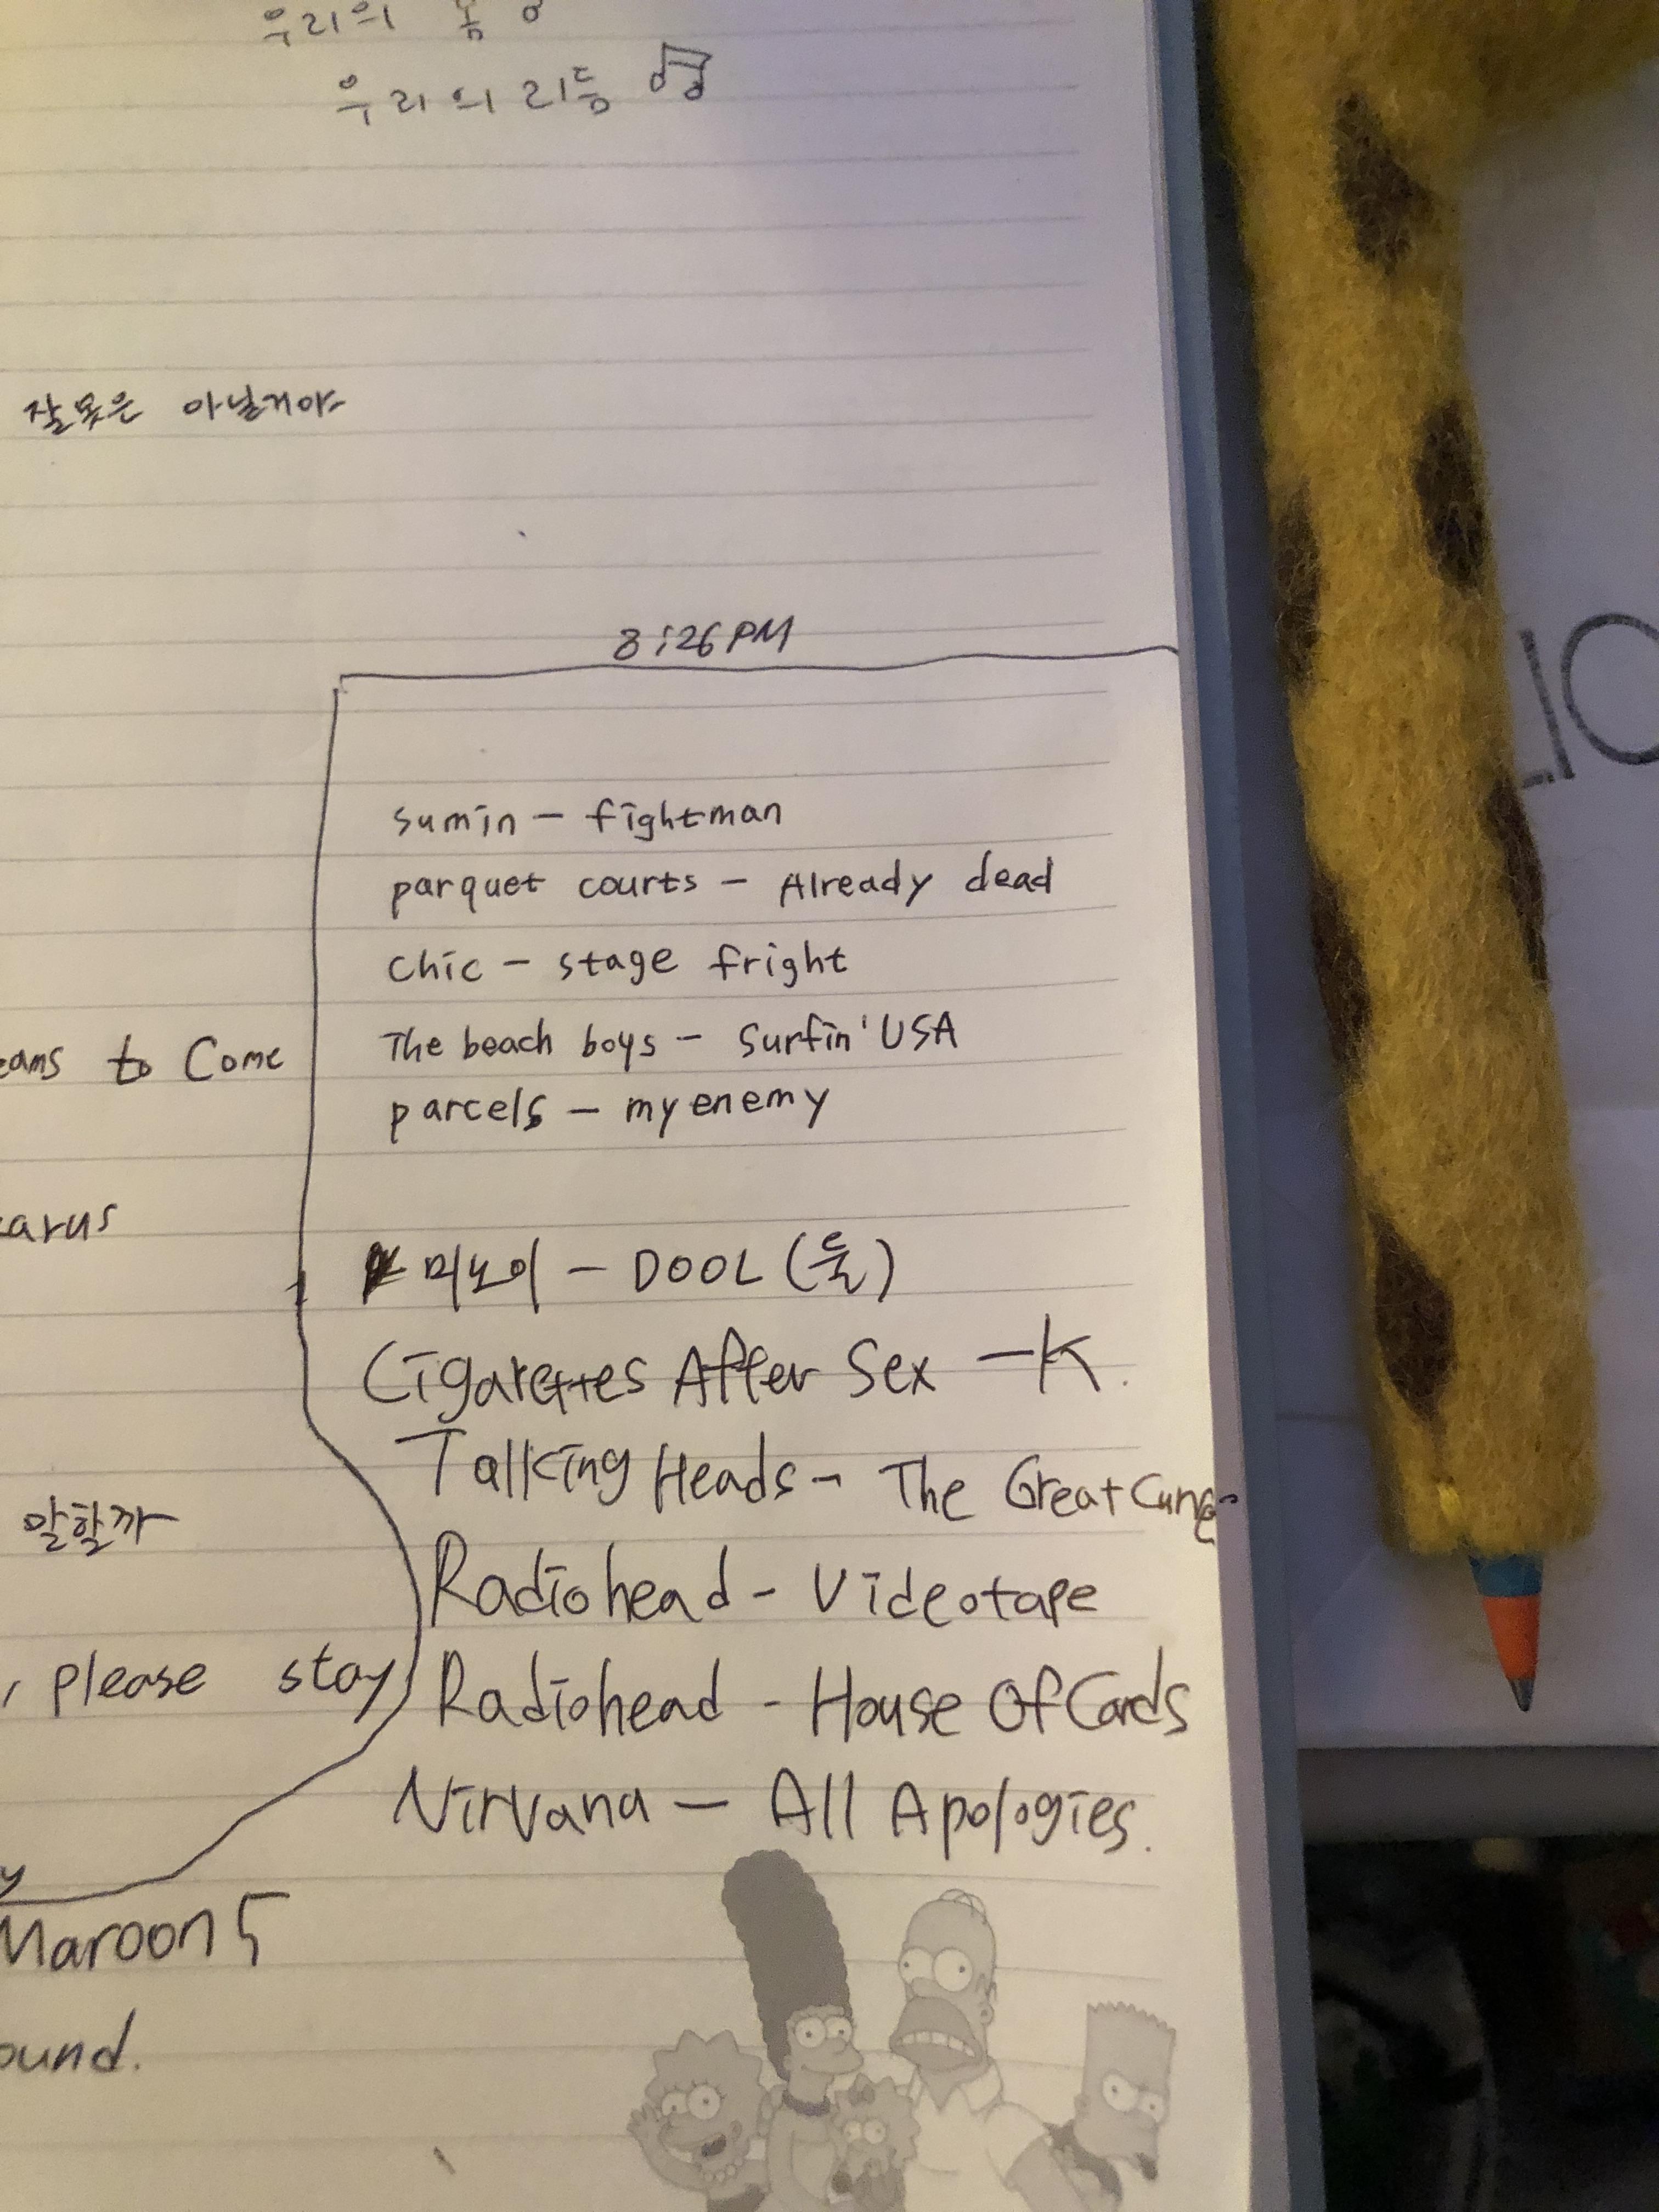 우리의
우리의 리듬
잘못은 아닐거야
8:26 PM
sumin – fightman
parquet courts – Already dead
chic – stage fright
The beach boys – Surfin' USA
to Come
parcels – my enemy
미노이 – DOOL (둘)
Cigarettes After Sex – K.
Talking Heads – The Great Curve
말할까
Radiohead – Videotape
, please stay
Radiohead - House Of Cards
Nirvana – All Apologies.
Maroon 5